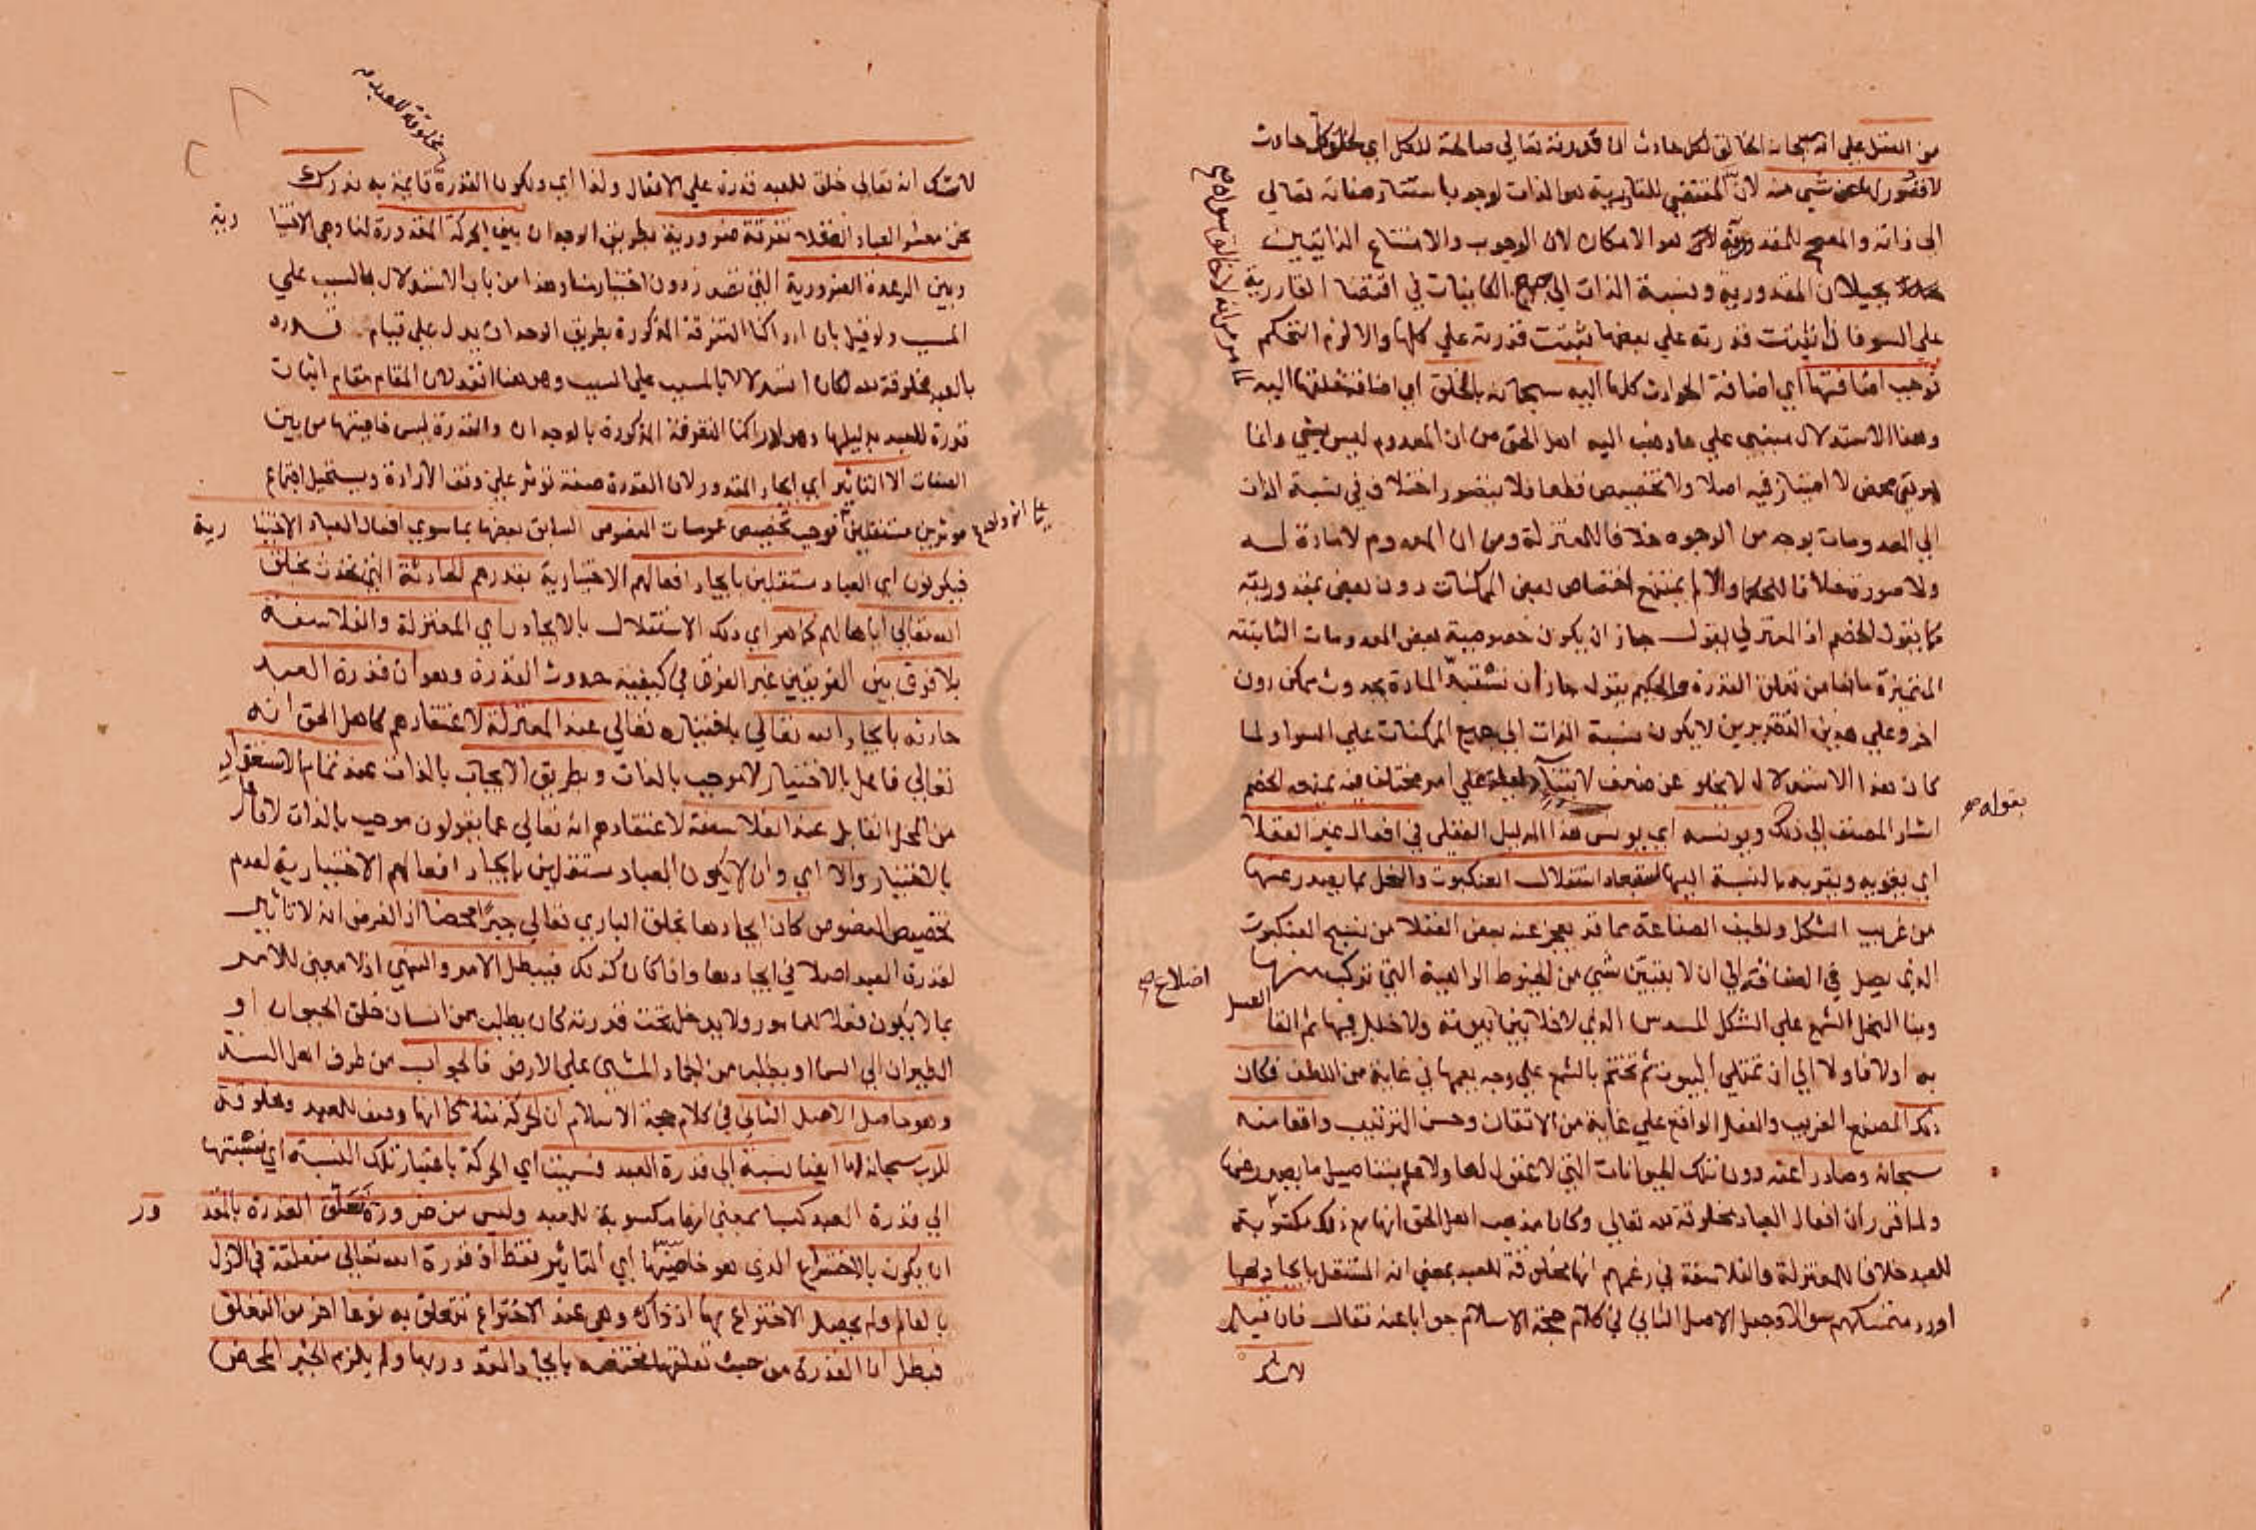 من العقل علي انه سبحانه الخالق لكل حادث ان قدرته تعالي صالحة للكل اي لخلق كل حادث
لا قصور لها عن شي منه لان المقتضي للقادرية هو الذات لوجوب استناد صفاته تعالي
الى ذاته والمصحح للمقدورية هو الامكان لان الوجوب والامتناع الذاتيين
يحيلان المقدورية ونسبة الذات الي جميع الكاينات في اقتضا القادرية
علي السوا فاذا ثبتت قدرته علي بعضها ثبتت قدرته علي كلها والا لزم التحكم
فوجب اضافتها اي اضافة الحوادث كلها اليه سبحانه بالخلق اي اضافة خلقها اليه
وهذا الاستدلال مبني علي ما ذهب اليه اهل الحق من ان المعدوم ليس بشي وانما
هو نفي محض لا امتياز فيه اصلا ولا تخصيص قطعا فلا يتصور اختلاف في نسبة الذات
الي المعدومات بوجه من الوجوه خلافا للمعتزلة ومن ان المعدوم لا مادة له
ولا صورة خلافا للحكما والا لم يمتنع اختصاص بعض الممكنات دون بعض بمقدوريته
كما يقول الخصم اذ المعتزلي يقول جاز ان يكون خصوصية بعض المعدومات الثابتة
المتميزة مانعا من تعلق القدرة والحكيم يقول جاز ان تستعد المادة بحدوث ممكن دون
اخر وعلي هذين التقديرين لا يكون نسبة الذات الي جميع الممكنات علي السوا ولما
كان هذا الاستدلال لا يخلو عن ضعف لابتنائه علي امر مختلف فيه يمنعه الخصم
بقوله صح
اشار المصنف الي ذلك ويونسه اي يونس هذا الدليل العقلي في افعال غير العقلا
اي يقويه ويقربه بالنسبة اليها استبعاد استقلال العنكبوت والنحل بما يصدر عنها
من غريب الشكل ولطيف الصناعة مما قد يعجز عنه بعض العقلا من نسج العنكبوت
الذي يصل في الصفاقة الي ان لا يتبين شي من الخيوط الواهية التي تركب منها
اصلاح صح
وبنا النحل الشمع علي الشكل المسدس الذي لا خلا بين بيوته ولا خلل فيها ثم القا العسل
به اولا فاولا الي ان تمتلي البيوت ثم تختم بالشمع علي وجه يعمها في غاية من اللطف فكان
ذلك الصنع الغريب والفعل الواقع علي غاية من الاتقان وحسن الترتيب واقعا منه
سبحانه وصادرا عنه دون تلك الحيوانات التي لا عقول لها ولا علم بتفاصيل ما يصدر عنها
ولما قرر ان افعال العباد مخلوقة لله تعالي وكان مذهب اهل الحق انها مع ذلك مكتسبة
للعبد خلافا للمعتزلة والفلاسفة في زعمهم انها مخلوقة للعبد بمعني انه المستقل بايجادها
اورد متمسكهم سوالا وجعل الاصل الثاني في كلام حجة الاسلام جوابا عنه فقال فان قيل
لا شك
مخلوقة للعبد
لا شك انه تعالي خلق للعبد قدرة علي الافعال ولذا اي ولكون القدرة قايمة به ندرك
نحن معشر العباد العقلا تفرقة ضرورية بطريق الوجدان بين الحركة المقدورة لنا وهي الاختيا رية
وبين الرعدة الضرورية التي تصدر دون اختيارنا وهذا من باب الاستدلال بالسبب علي
المسبب ولو قيل بان ادراكنا التفرقة المذكورة بطريق الوجدان يدل علي قيام قدرة
بالعبد مخلوقة لله لكان استدلالا بالمسبب علي السبب وهو هنا اقعد لان المقام مقام اثبات
قدرة للعبد بدليلها وهو ادراكنا التفرقة المذكورة بالوجدان والقدرة ليس خاصيتها من بين
الصفات الا التاثير اي ايجاد المقدور لان القدرة صفة توثر علي وفق الارادة ويستحيل اجتماع
موثرين مستقلين فوجب تخصيص عمومات النصوص السابق بعضها بما سوي افعال العباد الاختيا رية
فيكونون اي العباد مستقلين بايجاد افعالهم الاختيارية بقدرهم الحادثة التي تحدث بخلق
الله تعالي اياها لهم كما هو اي ذلك الاستقلال بالايجاد راي المعتزلة والفلاسفة
بلا فرق بين الفريقين غير الفرق في كيفية حدوث القدرة وهو ان قدرة العبد
حادثه بايجاد الله تعالي باختياره تعالي عند المعتزلة لاعتقادهم كاهل الحق انه
تعالي فاعل بالاختيار لا موجب بالذات وبطريق الايجاب بالذات عند تمام الاستعداد
من المحل القابل عند الفلاسفة لاعتقادهم انه تعالي عما يقولون موجب بالذات لا فاعل
بالاختيار والا اي وان لا يكون العباد مستقلين بايجاد افعالهم الاختيارية لعدم
تخصيص النصوص كان ايجادها بخلق الباري تعالي جبرا محضا اذ الفرض انه لا تاثير
لقدرة العبد اصلا في ايجادها واذا كان كذلك فيبطل الامر والنهي اذ لا معني للامر
بما لا يكون فعلا للمامور ولا يدخل تحت قدرته كان يطلب من انسان خلق الحيوان او
الطيران الي السما او يطلب من الجماد المشي علي الارض فالجواب من طرف اهل السنة
وهو حاصل الاصل الثاني في كلام حجة الاسلام ان الحركة مثلا كما انها وصف للعبد ومخلوقة
للرب سبحانه لها ايضا نسبة الي قدرة العبد فسميت اي الحركة باعتبار تلك النسبة اي نسبتها
الي قدرة العبد كسبا بمعني انها مكسوبة للعبد وليس من ضرورة تعلق القدرة بالمقد ور
ان يكون بالاختراع الذي هو خاصيتها اي التاثير فقط اذ قدرة الله تعالي متعلقة في الازل
بالعالم ولم يحصل الاختراع بها اذ ذاك وهي عند الاختراع تتعلق به نوعا اخر من التعلق
فبطل ان القدرة من حيث تعلقها مختصه بايجاد المقدور بها ولم يلزم الجبر المحض